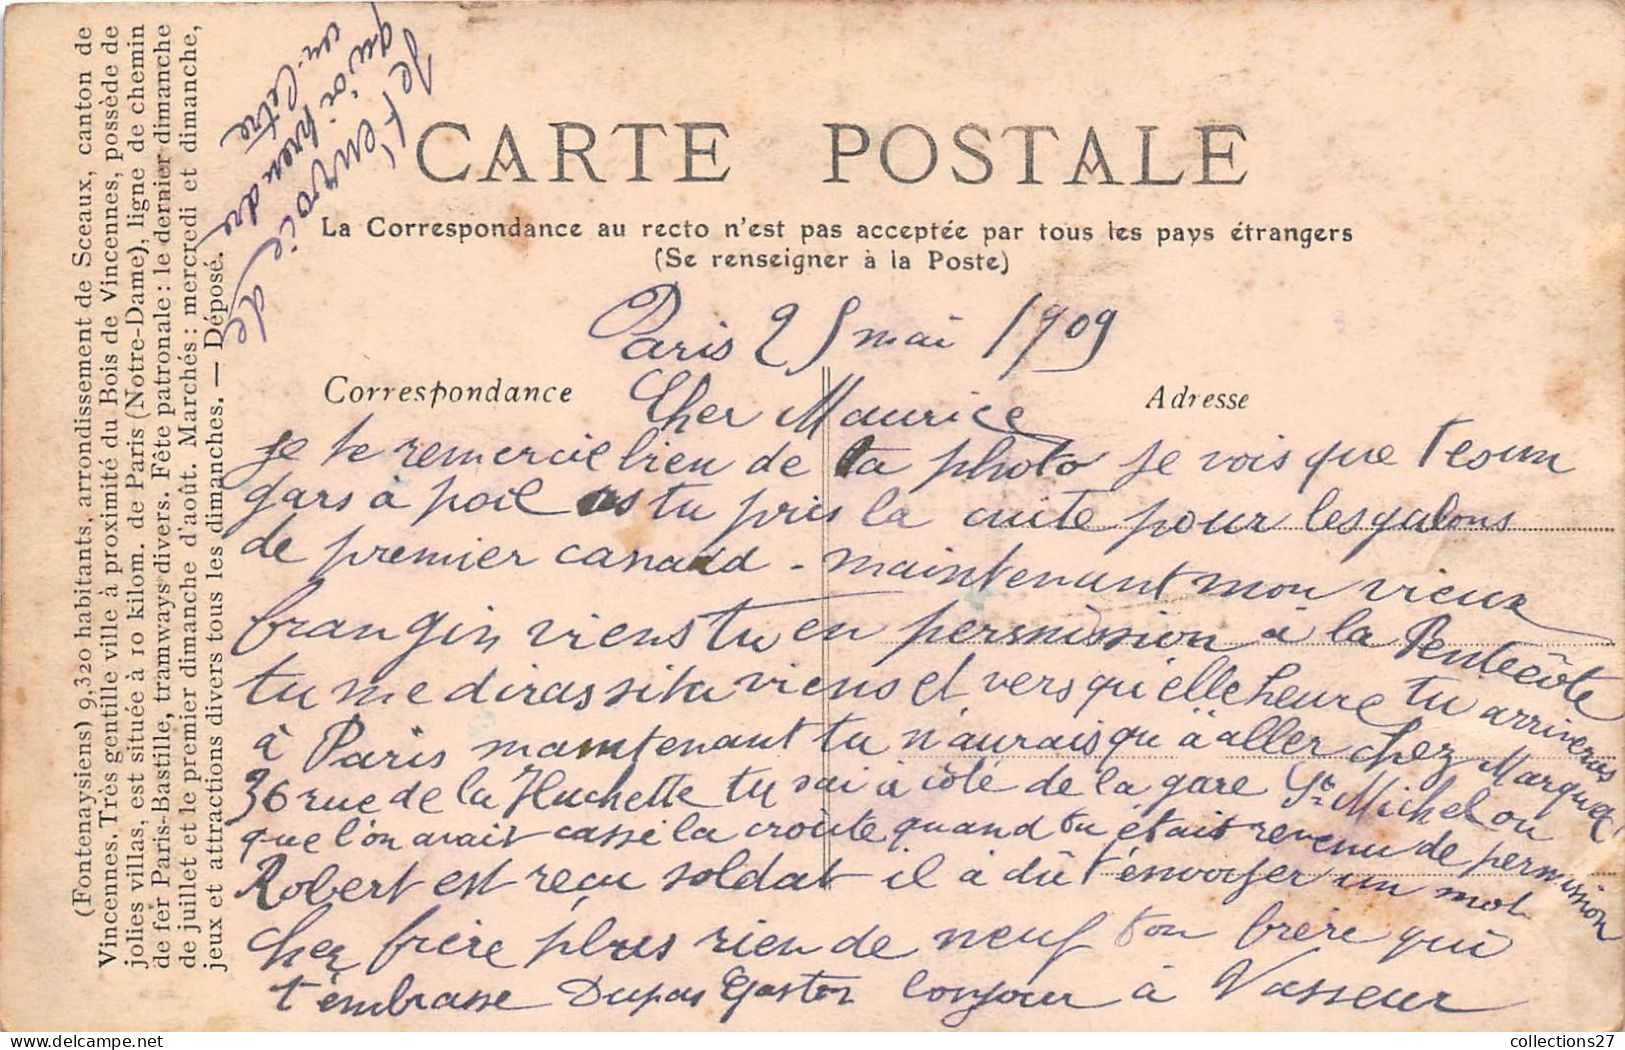 (Fontenaysiens) 9,320 habitants, arrondissement de Sceaux, canton de
Vincennes. Très gentille ville à proximité du Bois de Vincennes, possède de
jolies villas, est située à 10 kilom. de Paris (Notre-Dame), ligne de chemin
de fer Paris-Bastille, tramways divers. Fête patronale : le dernier dimanche
de juillet et le premier dimanche d'août. Marchés : mercredi et dimanche,
jeux et attractions divers tous les dimanches. — Déposé.
Je t'envoie de
quoi prendre
un litre
CARTE POSTALE
La Correspondance au recto n'est pas acceptée par tous les pays étrangers
(Se renseigner à la Poste)
Paris 25 mai 1909
Correspondance
Adresse
Cher Maurice
je te remercie bien de ta photo je vois que t es un
gars à poil as tu pris la cuite pour les galons
de premier canard - maintenant mon vieux
frangin viens tu en permission à la Pentecôte
tu me diras si tu viens et vers qu'elle heure tu arriveras
à Paris maintenant tu n'aurais qu'à aller chez Marquet
36 rue de la Huchette tu sai à côté de la gare St Michel ou
que l'on avait cassé la croûte quand tu était revenu de permission
Robert est reçu soldat il à dû t'envoyer un mot
cher frère plus rien de neuf ton frère qui
t'embrasse Dupas Gaston bonjour à Vasseur
collections27